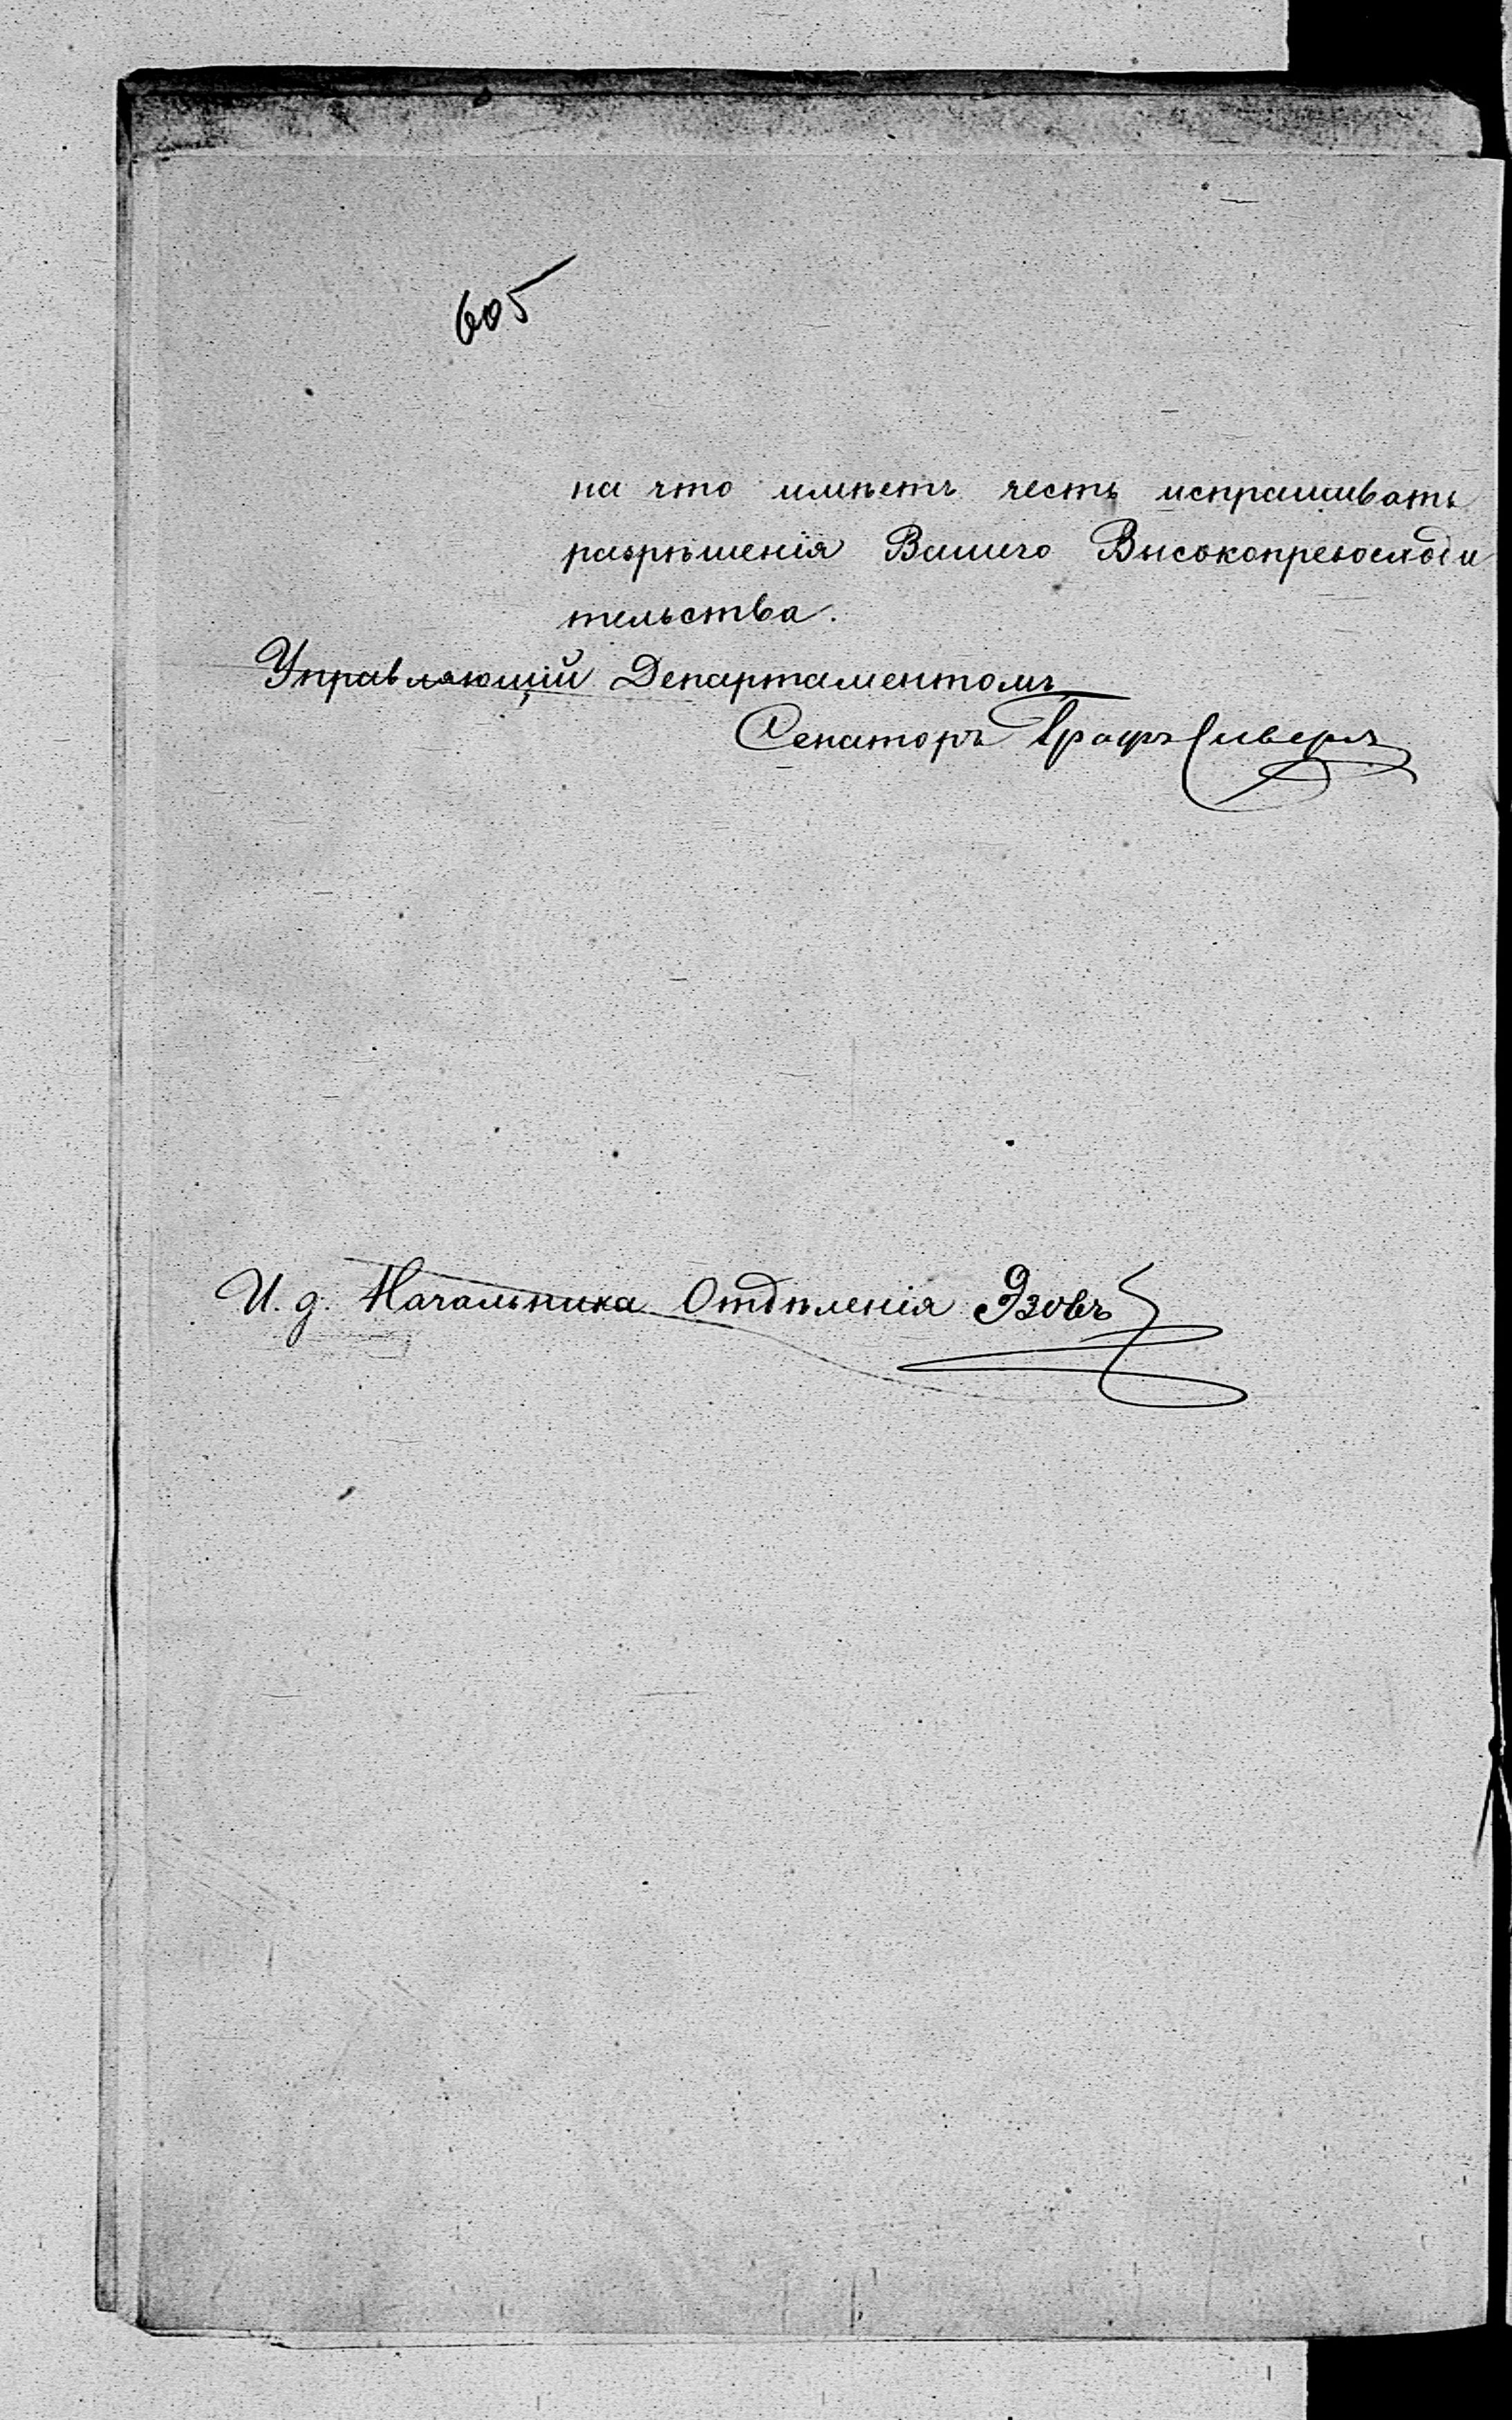 605
на что имѣетъ честь испрашивать
разрѣшенія Вашего Высокопревосходи
тельства.
Управляющій Департаментомъ
Сенаторъ Графъ Сиверсъ
И. д. Начальника Отдѣленія Эзовъ